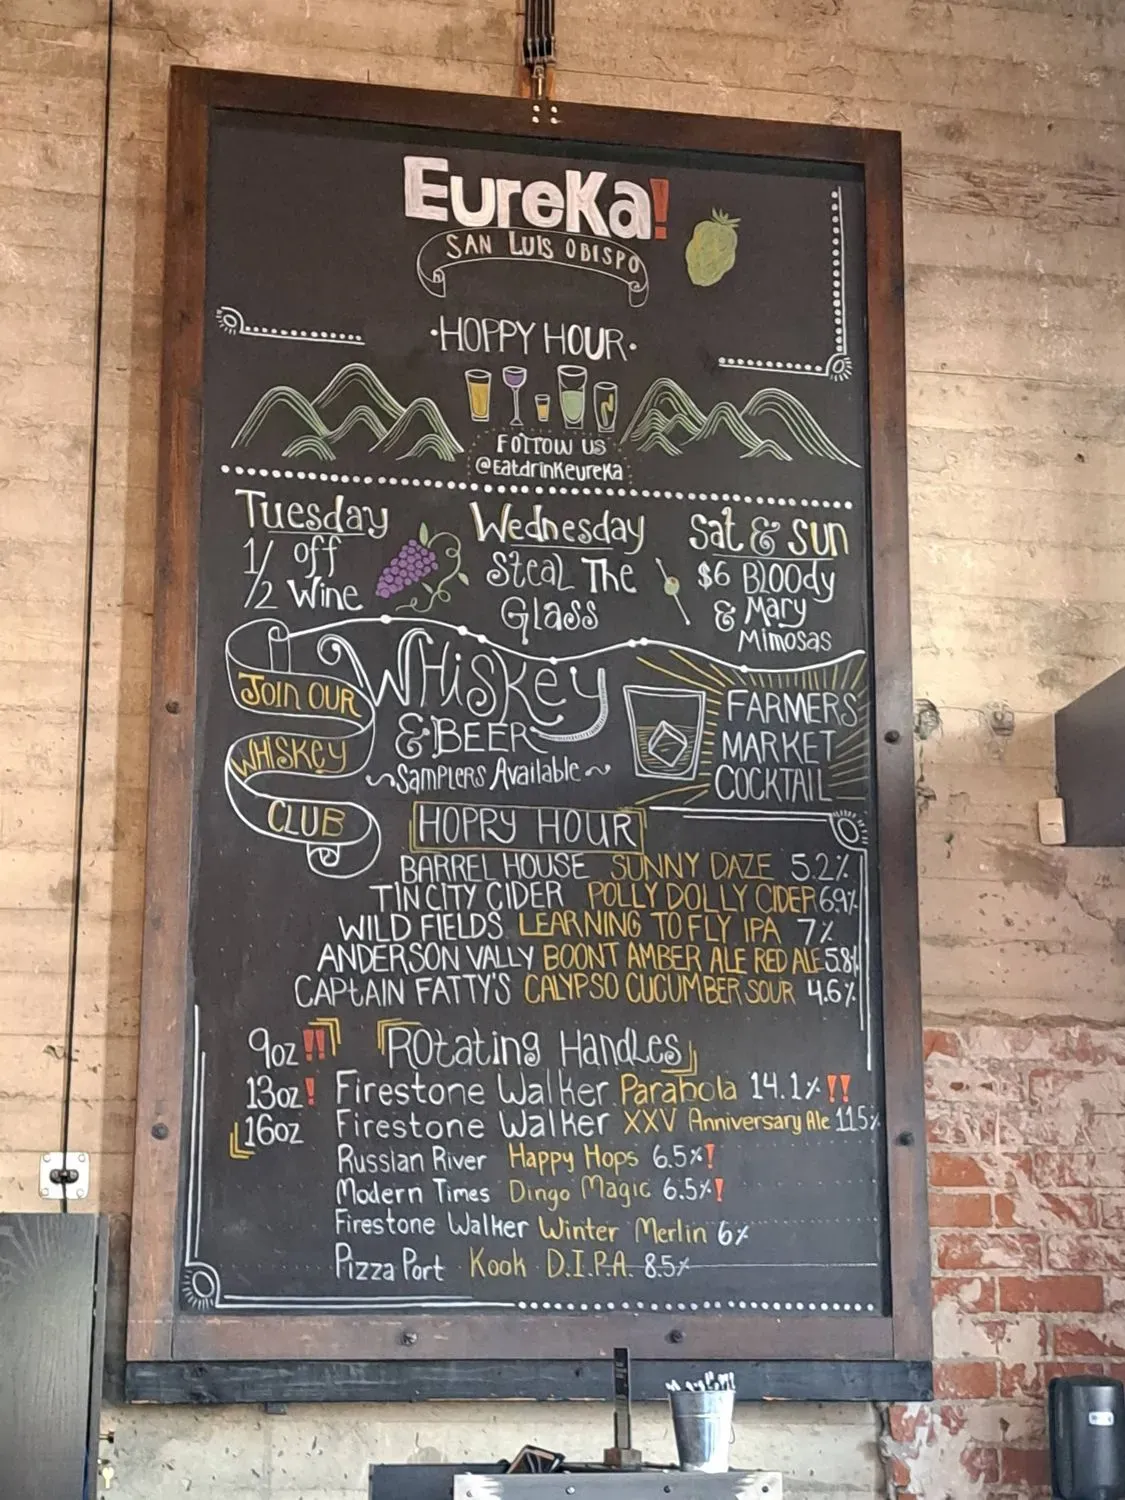 EureKa!
SAN LUIS OBISPO
·HOPPY HOUR·
FOLLOW US
@EatdrinKeureKa
Tuesday
1/2 off
Wine
Wednesday
Steal The
Glass
Sat & Sun
$6 Bloody
& Mary
Mimosas
JOIN OUR
WHISKEY
CLUB
WHiSKey
& BEER
~Samplers Available~
FARMERS
MARKET
COCKTAIL
HOPPY HOUR
BARREL HOUSE SUNNY DAZE 5.2%
TIN CITY CIDER POLLY DOLLY CIDER 6.9%
WILD FIELDS LEARNING TO FLY IPA 7%
ANDERSON VALLY BOONT AMBER ALE RED ALE 5.8%
CAPtAIN FATTY'S CALYPSO CUCUMBER SOUR 4.6%
9oz!!
13oz!
16oz
ROtating HandLES
Firestone Walker Parabola 14.1% !!
Firestone Walker XXV Anniversary Ale 11.5%
Russian River Happy Hops 6.5% !
Modern Times Dingo Magic 6.5% !
Firestone Walker Winter Merlin 6%
Pizza Port Kook D.I.P.A. 8.5%